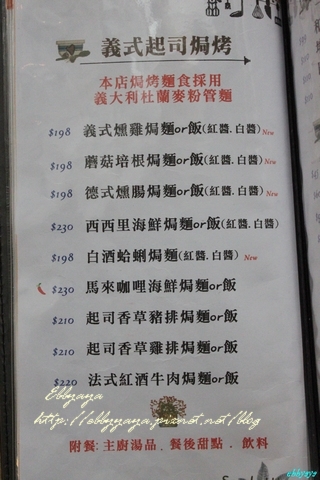 義式起司焗烤
本店焗烤麵食採用
義大利杜蘭麥粉管麵
$198 義式燻雞焗麵or飯(紅醬.白醬) New
$198 蘑菇培根焗麵or飯(紅醬.白醬) New
$198 德式燻腸焗麵or飯(紅醬.白醬) New
$230 西西里海鮮焗麵or飯(紅醬.白醬)
$198 白酒蛤蜊焗麵(紅醬.白醬) New
$230 馬來咖哩海鮮焗麵or飯
$210 起司香草豬排焗麵or飯
$210 起司香草雞排焗麵or飯
$220 法式紅酒牛肉焗麵or飯
Ebbyaya
http://ebbyaya.pixnet.net/blog
附餐:主廚湯品.餐後甜點.飲料
ebbyaya